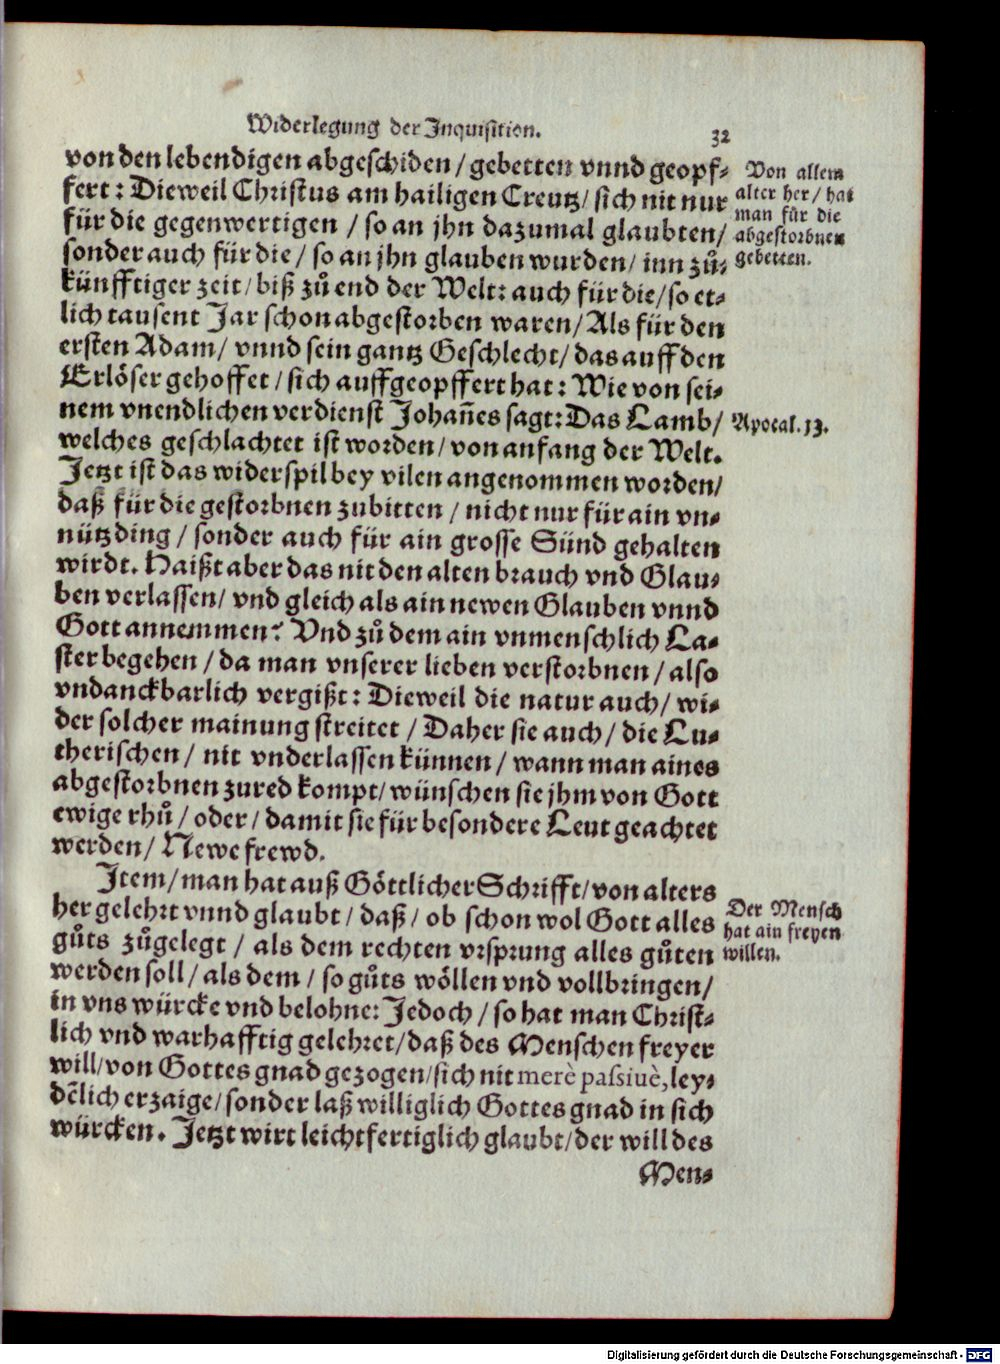 Widerlegung der Inquisition. 32
von den lebendigen abgeschiden / gebetten vnnd geopf⸗
fert: Dieweil Christus am hailigen Creutz / sich nit nur
für die gegenwertigen / so an jhn dazumal glaubten /
sonder auch für die / so an jhn glauben wurden / inn zů⸗
künfftiger zeit / biß zů end der Welt: auch für die / so et⸗
lich tausent Jar schon abgestorben waren / Als für den
ersten Adam / vnnd sein gantz Geschlecht / das auff den
Erlöser gehoffet / sich auffgeopffert hat: Wie von sei⸗
nem vnendlichen verdienst Johañes sagt: Das Lamb /
welches geschlachtet ist worden / von anfang der Welt.
Jetzt ist das widerspil bey vilen angenommen worden /
daß für die gestorbnen zubitten / nicht nur für ain vn⸗
nütz ding / sonder auch für ain grosse Sünd gehalten
wirdt. Haißt aber das nit den alten brauch vnd Glau⸗
ben verlassen / vnd gleich als ain newen Glauben vnnd
Gott annemmen? Vnd zů dem ain vnmenschlich La⸗
ster begehen / da man vnserer lieben verstorbnen / also
vndanckbarlich vergißt: Dieweil die natur auch / wi⸗
der solcher mainung streitet / Daher sie auch / die Lu⸗
therischen / nit vnderlassen künnen / wann man aines
abgestorbnen zured kompt / wünschen sie jhm von Gott
ewige rhů / oder / damit sie für besondere Leut geachtet
werden / Newe frewd.
Item / man hat auß Göttlicher Schrifft / von alters
her gelehrt vnnd glaubt / daß / ob schon wol Gott alles
gůts zůgelegt / als dem rechten vrsprung alles gůten
werden soll / als dem / so gůts wöllen vnd vollbringen /
in vns würcke vnd belohne: Jedoch / so hat man Christ⸗
lich vnd warhafftig gelehret / daß des Menschen freyer
will / von Gottes gnad gezogen / sich nit merè passiuè, ley⸗
dẽlich erzaige / sonder laß williglich Gottes gnad in sich
würcken. Jetzt wirt leichtfertiglich glaubt / der will des
Men⸗
Von allem
alter her / hat
man für die
abgestorbnen
gebetten.
Apocal. 13.
Der Mensch
hat ain freyen
willen.
Digitalisierung gefördert durch die Deutsche Forschungsgemeinschaft - DFG